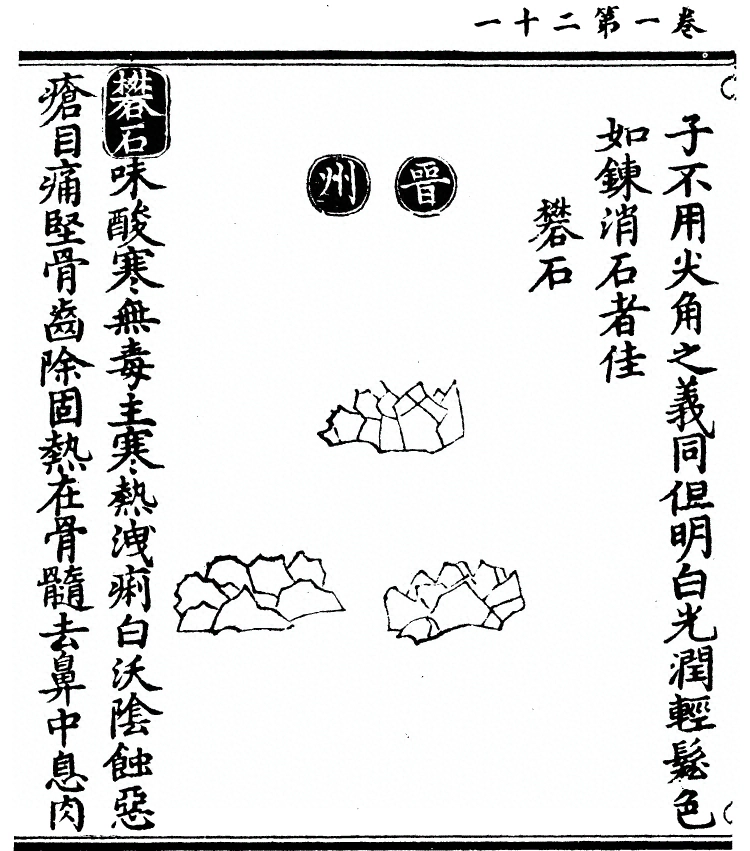 卷一第二十一
子不用尖角之義同但明白光潤輕鬆色
如鍊消石者佳
礬石
晉州
礬石味酸寒無毒主寒熱洩痢白沃陰蝕惡
瘡目痛堅骨齒除固熱在骨髓去鼻中息肉